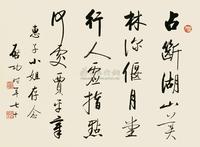 占断湖山菓
林弥偃月堂
行人虚指点
何处贾平章
惠子小姐存念
启功时年七十